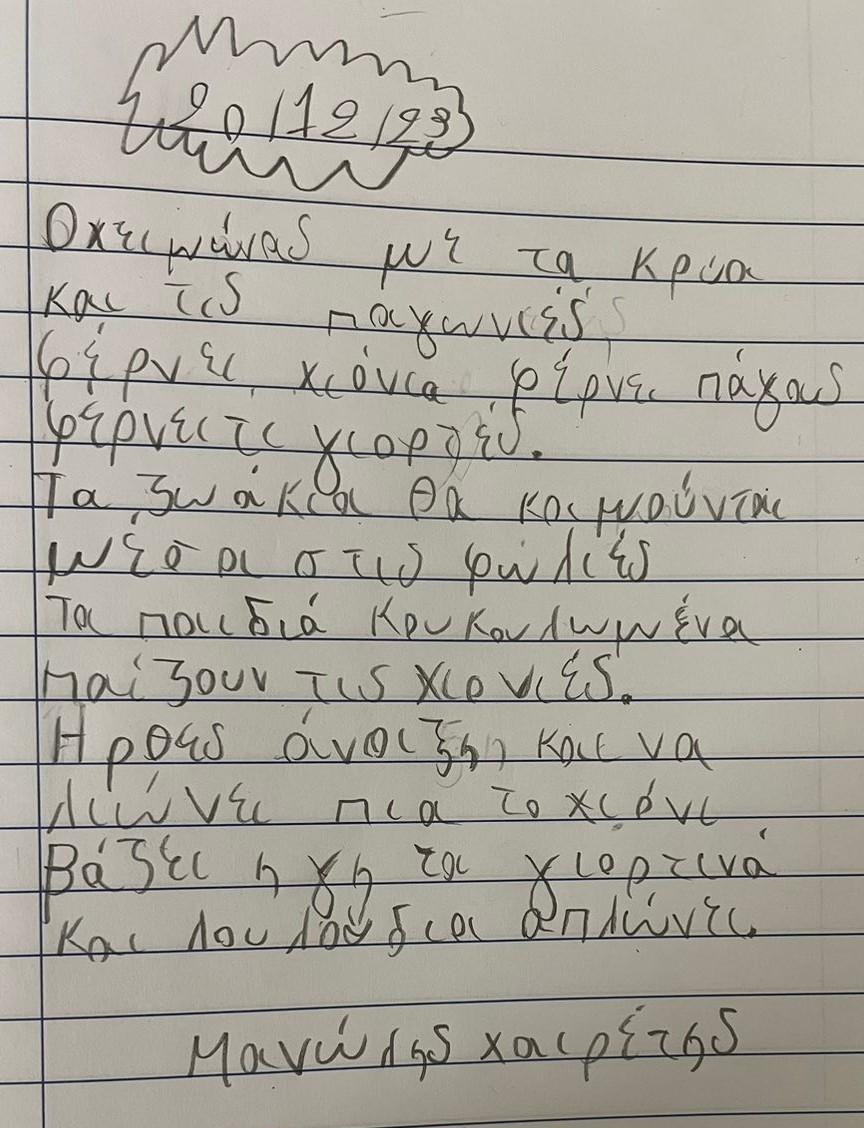 20/12/23
Οχειμώνας με τα κρύα
και τις παγωνιές
φέρνει χιόνια φέρνει πάγους
φέρνει τις γιορτές.
Τα ζωάκια θα κοιμούνται
μέσα στις φωλιές
Τα παιδιά κουκουλωμένα
παίζουν τις χιονιές.
Ηρθες άνοιξη και να
λιώνει πια το χιόνι
Βάζει η γη τα γιορτινά
και λουλούδια απλώνει.
Μανώλης χαιρέτης